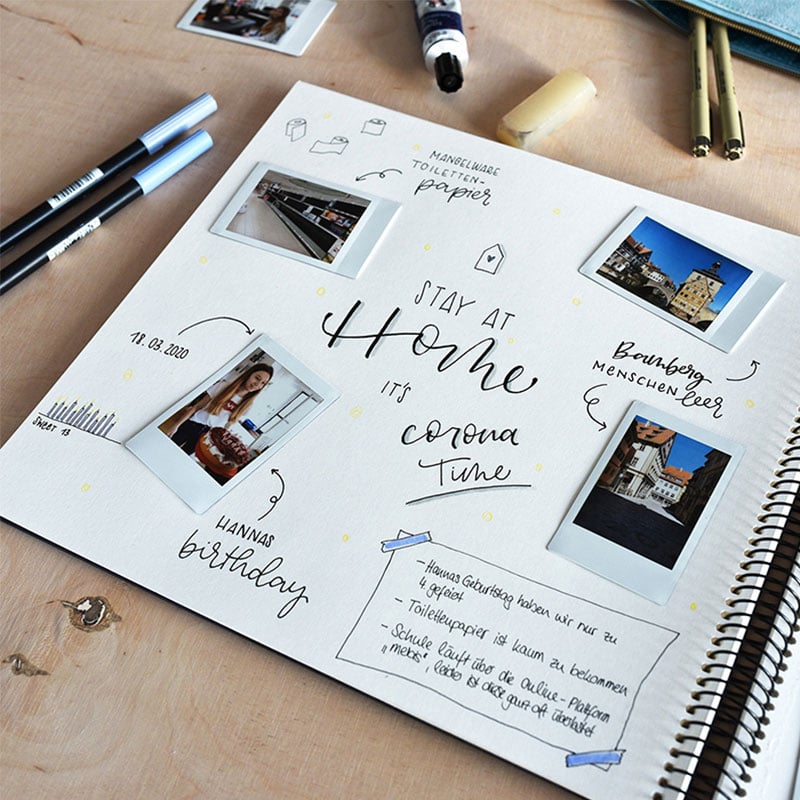 MANGELWARE
TOILETTEN-
papier
STAY AT
Home
IT'S
corona
Time
18.03.2020
SWEET 13
HANNAS
birthday
Bamberg
MENSCHENleer
- Hannas Geburtstag haben wir nur zu
4. gefeiert
- Toilettenpapier ist kaum zu bekommen
- Schule läuft über die Online-Plattform
„mebis“, leider ist diese ganz oft überlastet